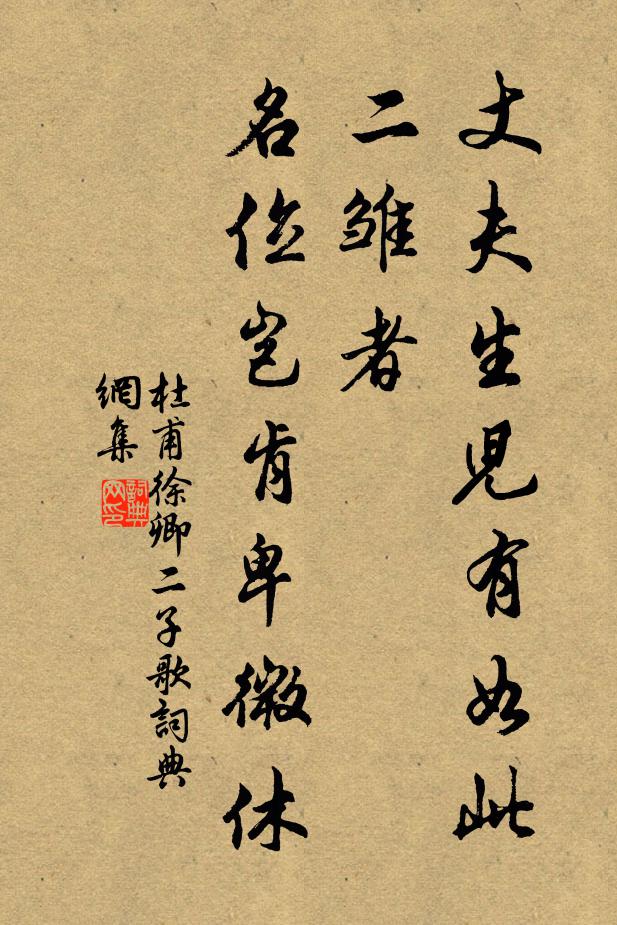 丈夫生兒有如此
二雏者
名位岂肯卑微休
杜甫徐卿二子歌詞典
網集
詞典
网印